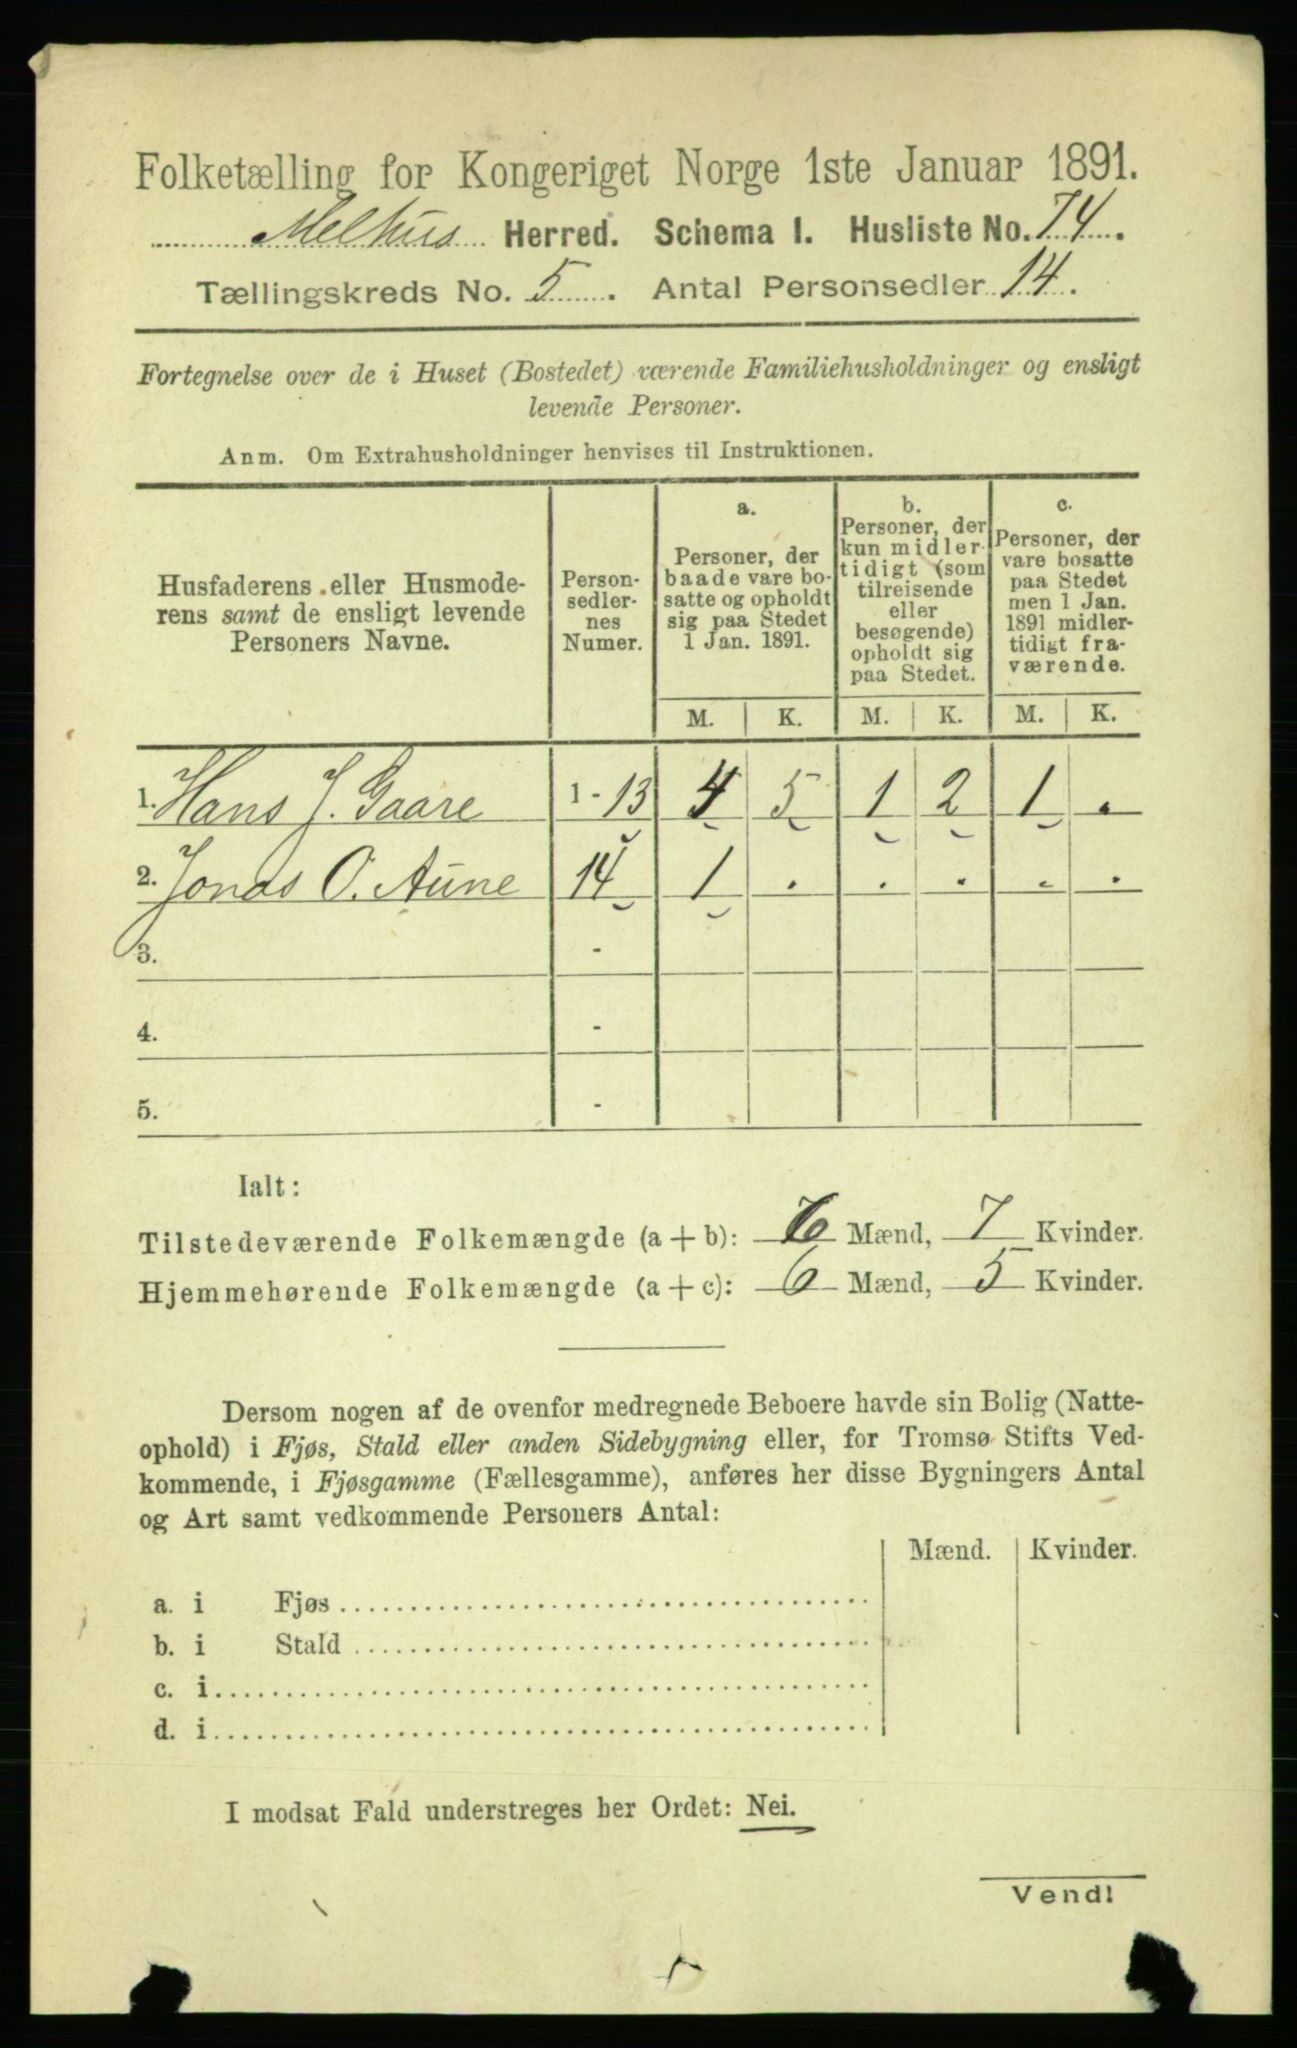 Folketælling for Kongeriget Norge 1ste Januar 1891.
Melhus Herred. Schema I. Husliste No. 74.
Tællingskreds No. 5. Antal Personsedler 14.
Fortegnelse over de i Huset (Bostedet) værende Familiehusholdninger og ensligt
levende Personer.
Anm. Om Extrahusholdninger henvises til Instruktionen.
Husfaderens eller Husmode-
rens samt de ensligt levende
Personers Navne.
Person-
sedler-
nes
Numer.
a.
Personer, der
baade vare bo-
satte og opholdt
sig paa Stedet
1 Jan. 1891.
b.
Personer, der
kun midler-
tidigt (som
tilreisende
eller
besøgende)
opholdt sig
paa Stedet.
c.
Personer, der
vare bosatte
paa Stedet
men 1 Jan.
1891 midler-
tidigt fra-
værende.
M. K. M. K. M. K.
1. Hans J. Gaare 1-13 4 5 1 2 1 .
2. Jonas O. Aune 14 1 . . . . .
3. -
4. -
5. -
Ialt:
Tilstedeværende Folkemængde (a + b): 6 Mænd, 7 Kvinder.
Hjemmehørende Folkemængde (a + c): 6 Mænd, 5 Kvinder.
Dersom nogen af de ovenfor medregnede Beboere havde sin Bolig (Natte-
ophold) i Fjøs, Stald eller anden Sidebygning eller, for Tromsø Stifts Ved-
kommende, i Fjøsgamme (Fællesgamme), anføres her disse Bygningers Antal
og Art samt vedkommende Personers Antal:
Mænd. Kvinder.
a. i Fjøs
b. i Stald
c. i
d. i
I modsat Fald understreges her Ordet: Nei.
Vend!